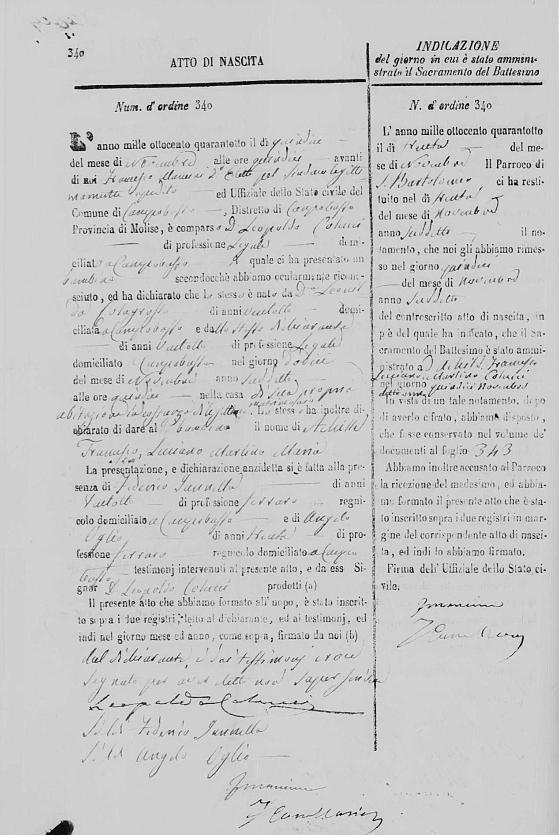 340
ATTO DI NASCITA
Num. d'ordine 340
L'anno mille ottocento quarantotto il dì quindici
del mese di Novembre alle ore quindici avanti
di noi Francesco
ed Uffiziale dello Stato civile del
Comune di Campobasso, Distretto di Campobasso
Provincia di Molise, è comparso D. Leopoldo Colucci
di professione Legale domi-
ciliato a Campobasso il quale ci ha presentato un
bambino secondochè abbiamo ocularmente ricono-
sciuto, ed ha dichiarato che lo stesso è nato da Da
di anni ventotto domi-
ciliata a Campobasso e dallo stesso dichiarante
di anni ventotto di professione Legale
domiciliato Campobasso nel giorno dodici
del mese di Novembre anno suddetto
alle ore quindici nella casa di sua propria
abitazione Lo stesso ha inoltre di-
chiarato di dare al bambino il nome di Achille
Francesco, Luciano Martino Maria
La presentazione, e dichiarazione anzidetta si è fatta alla pre-
senza di Federico Iannella di anni
ventotto di professione ferraro regni-
colo domiciliato a Campobasso e di Angelo
Oglio di anni trenta di pro-
fessione ferraro regnicolo domiciliato a Campo
basso testimonj intervenuti al presente atto, e da ess Si-
gnor D. Leopoldo Colucci prodotti (a)
Il presente atto che abbiamo formato all'uopo, è stato inscrit-
to sopra i due registri, letto al dichiarante, ed ai testimonj, ed
indi nel giorno mese ed anno, come sopra, firmato da noi (b)
dal dichiarante, i due testimonj croce
segnato per aver detto non saper scrivere
Leopoldo Colucci
Federico Iannella
Angelo Oglio
INDICAZIONE
del giorno in cui è stato ammini-
strato il Sacramento del Battesimo
N. d'ordine 340
L'anno mille ottocento quarantotto
il dì trenta del me-
se di Novembre Il Parroco di
S. Bartolomeo ci ha resti-
tuito nel dì trenta
del mese di Novembre
anno suddetto il no-
tamento, che noi gli abbiamo rimes-
so nel giorno quindici
del mese di Novembre
anno suddetto
del controscritto atto di nascita, in
piè del quale ha indicato, che il Sa-
cramento del Battesimo è stato ammini-
strato a D. Achille, Francesco
Luciano Martino Colucci
nel giorno quindici Novembre
detto anno
In vista di un tale notamento, dopo
di averlo cifrato, abbiamo disposto,
che fosse conservato nel volume de'
documenti al foglio 343
Abbiamo inoltre accusato al Parroco
la ricezione del medesimo, ed abbia-
mo formato il presente atto che è sta-
to inscritto sopra i due registri in mar-
gine del corrispondente atto di nasci-
ta, ed indi lo abbiamo firmato.
Firma dell'Uffiziale dello Stato ci-
vile.